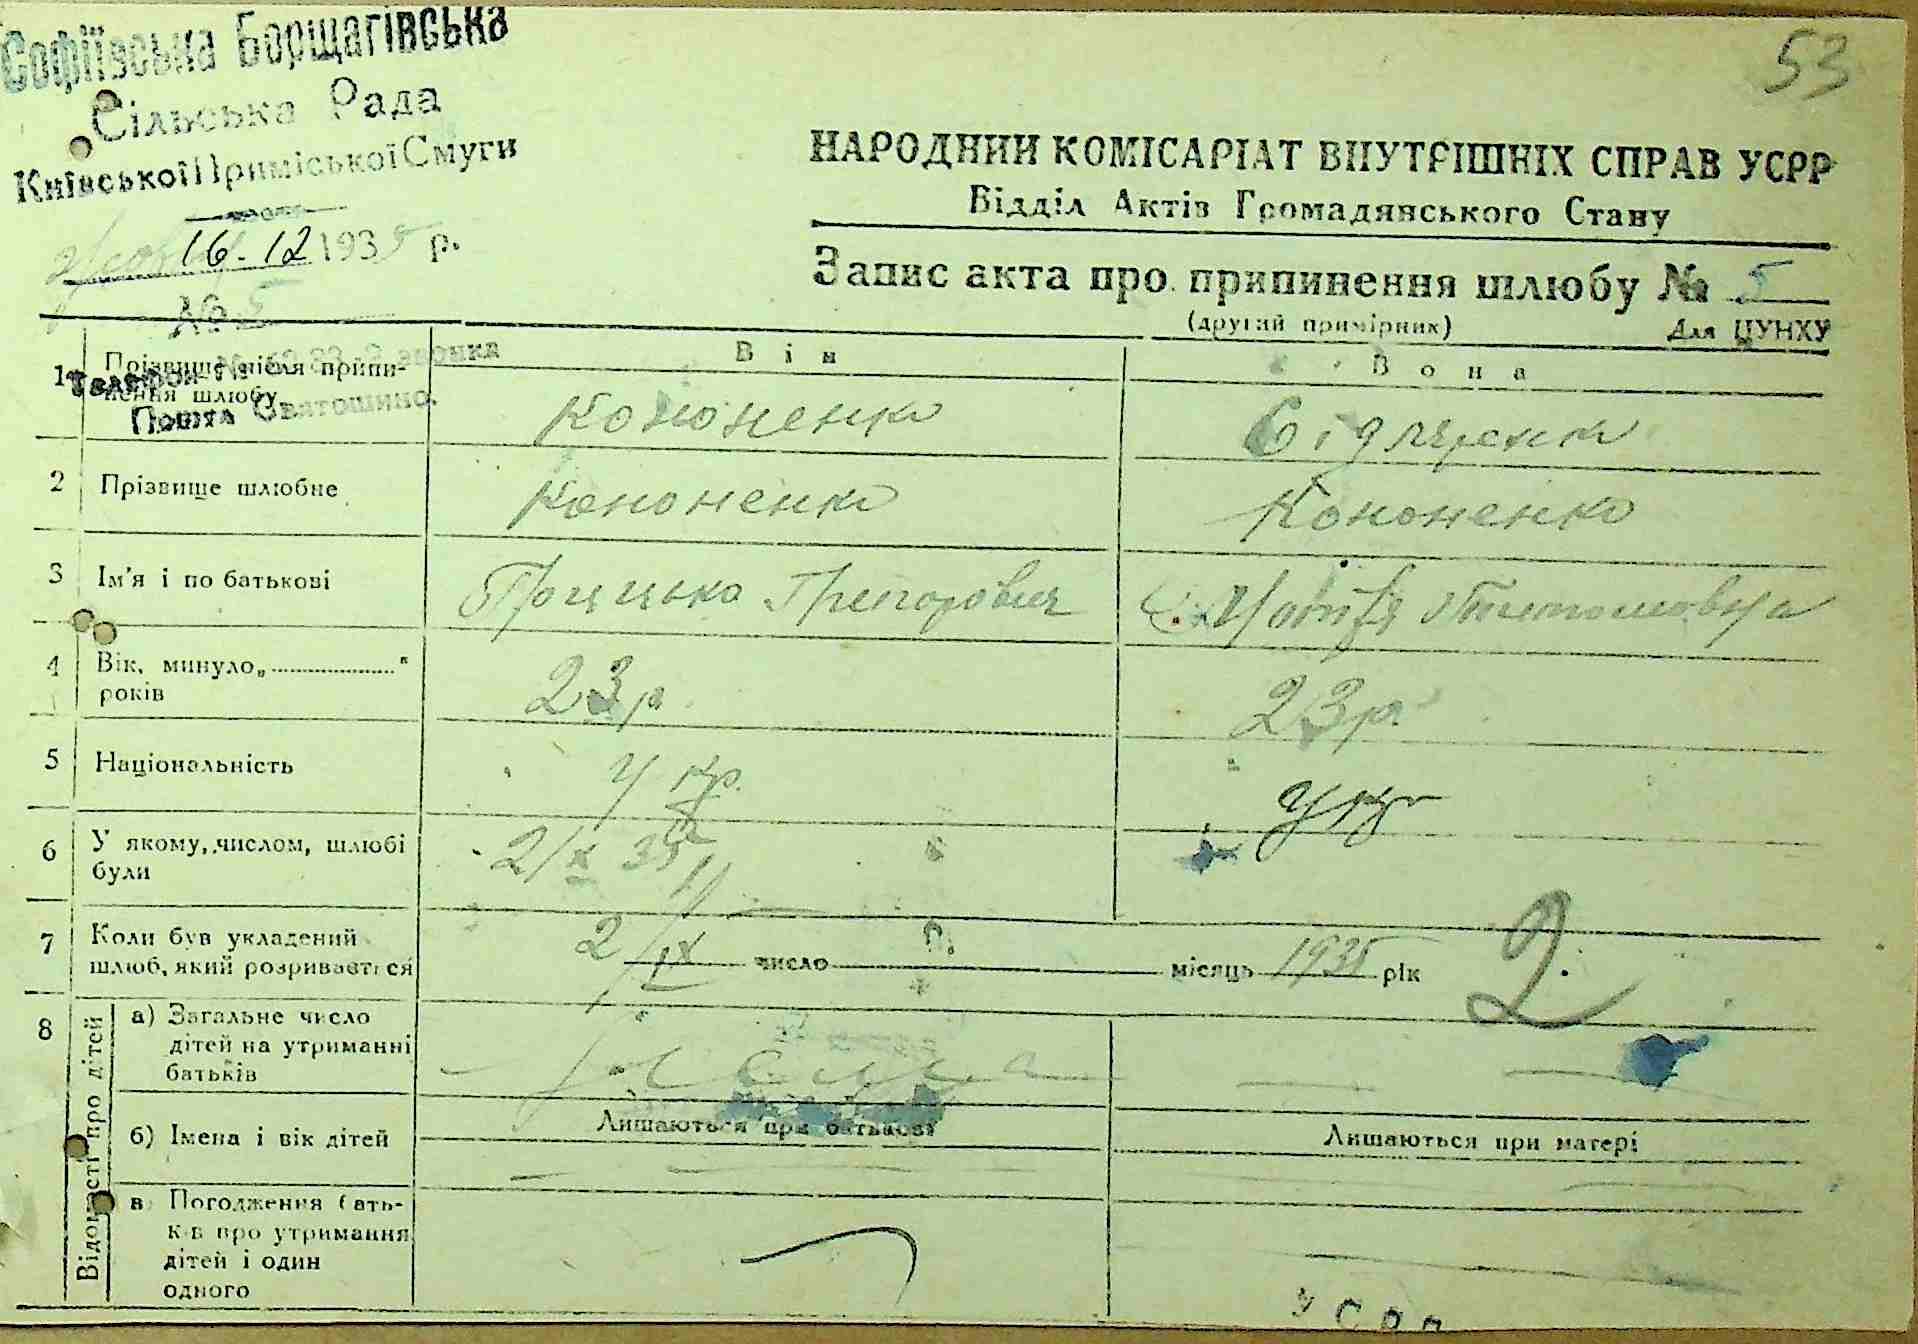 53
Софіївська Борщагівська
Сільська Рада
Київської Приміської Смуги
16.12 1935 р.
№ 5
Телефон
Пошта Святошино.
НАРОДНИЙ КОМІСАРІАТ ВНУТРІШНІХ СПРАВ УСРР
Відділ Актів Громадянського Стану
Запис акта про припинення шлюбу № 5
(другий примірник) Для ЦУНХУ
Він Вона
1 Прізвище після припинення шлюбу Кононенко Сідляренко
2 Прізвище шлюбне Кононенко Кононенко
3 Ім'я і по батькові Грицько Григорович
4 Вік, минуло „ “ років 23 р. 23 р.
5 Національність Укр. Укр
6 У якому, числом, шлюбі були 2/ІХ 35
7 Коли був укладений шлюб, який розривається 2/ІХ число місяць 1935 рік
2.
8 Відомості про дітей
а) Загальне число дітей на утриманні батьків нема
Лишаються при батькові Лишаються при матері
б) Імена і вік дітей
в) Погодження батьків про утримання дітей і один одного
УСРР